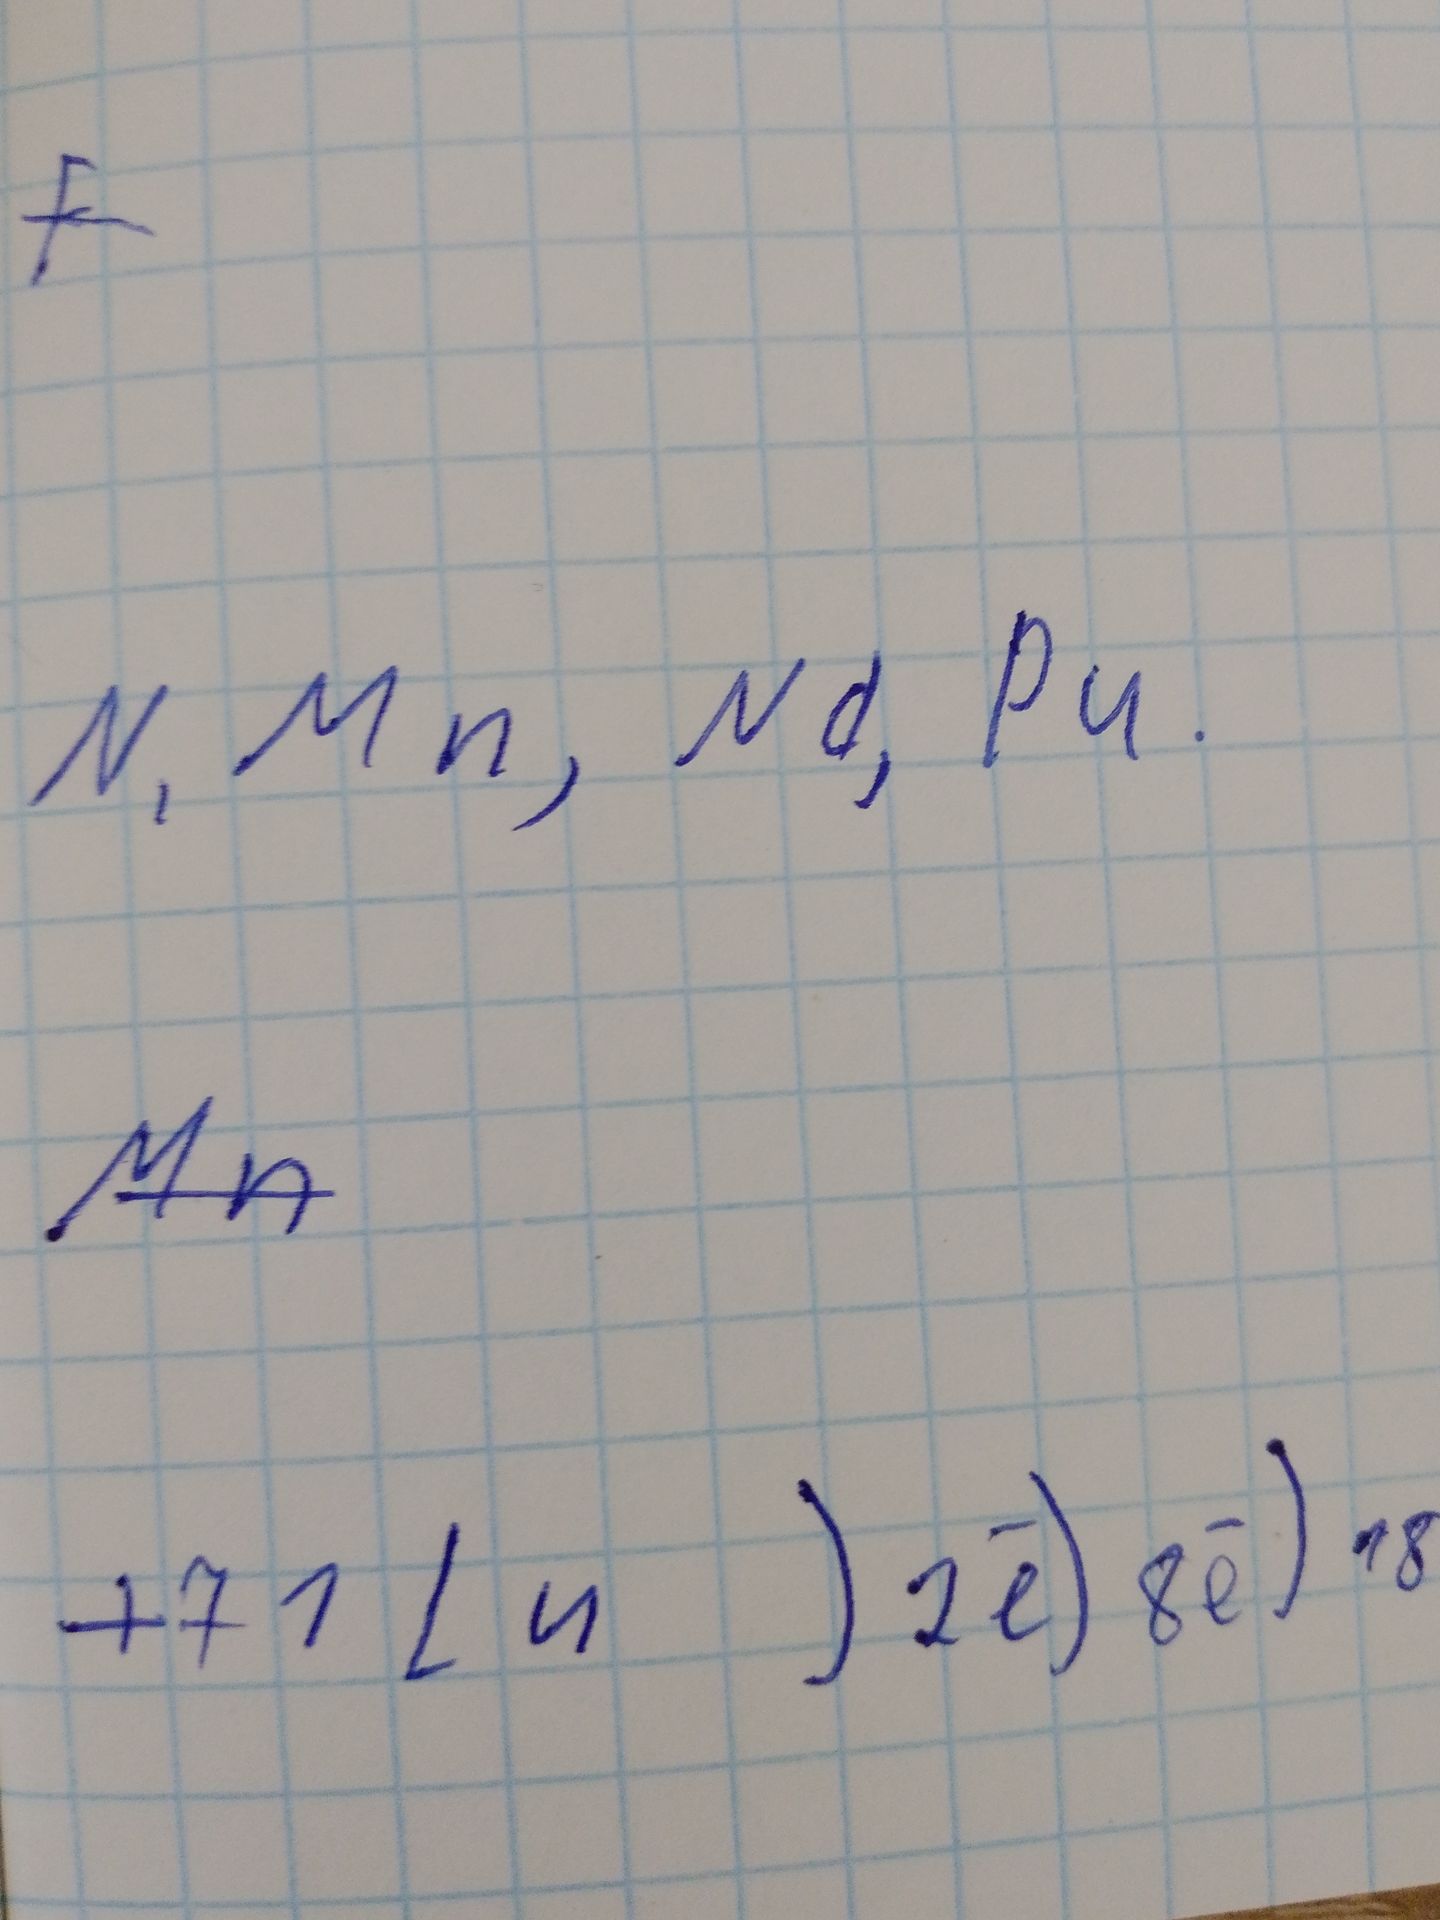 F
N, Mn, Nd, Pu.
Mn
+71 Lu )2ē)8ē)18